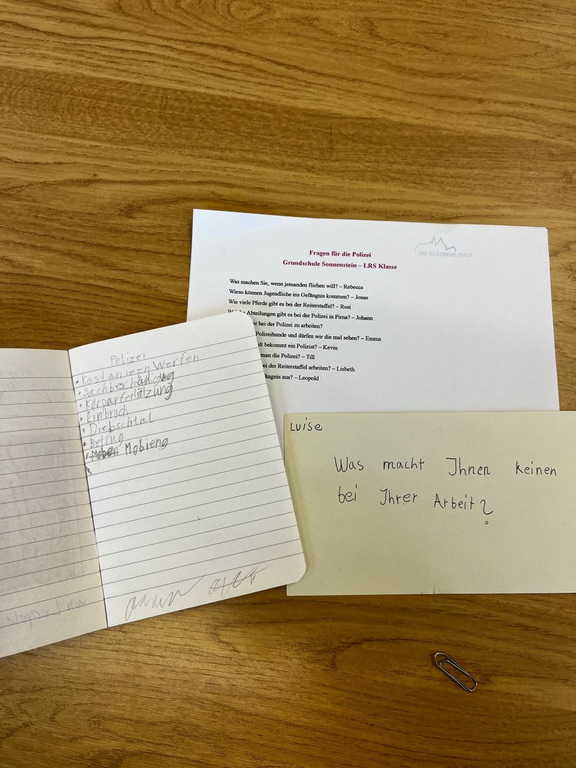 Fragen für die Polizei
Grundschule Sonnenstein – LRS Klasse
Was machen Sie, wenn jemanden fliehen will? – Rebecca
Wieso können Jugendliche ins Gefängnis kommen? – Jonas
Wie viele Pferde gibt es bei der Reiterstaffel? – Rosi
Abteilungen gibt es bei der Polizei in Pirna? – Johann
bei der Polizei zu arbeiten?
Polizeihunde und dürfen wir die mal sehen? – Emma
bekommt ein Polizist? – Kevin
man die Polizei? – Till
bei der Reiterstaffel arbeiten? – Lisbeth
aus? – Leopold
Polizei
• Kastanieen Werfen
• Sachbrschädigung
• Körparferlätzung
• Einbruch
• Diebschtal
• Betrug
• Mobieng
Luise
Was macht Ihnen keinen
bei Ihrer Arbeit?